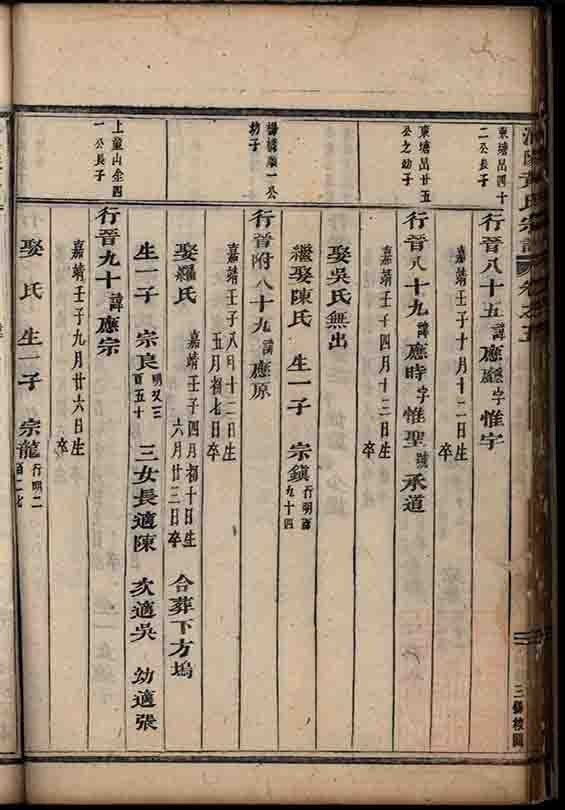 黃氏宗譜 卷之五
三
東塘呂四十
二公長子
行晉八十五 諱 應 字 惟字
嘉靖壬子十月十二日生
卒
東塘呂廿五
公之幼子
行晉八十九 諱 應時 字 惟聖 號 承道
嘉靖壬子四月十三日生
卒
娶吳氏無出
繼娶陳氏 生一子 宗鎮 行明
九十四
一公
幼子
行晉附八十九 諱 應原
嘉靖壬子八月十二日生
五月初七日卒
娶羅氏 嘉靖壬子四月初十日生
六月廿三日卒 合葬下方塢
生一子 宗良 明又三
百五十 三女長適陳 次適吳 幼適張
上 山 四
一公長子
行晉九十 諱 應宗
嘉靖壬子九月廿六日生
卒
娶 氏 生一子 宗龍 行明二
百二七